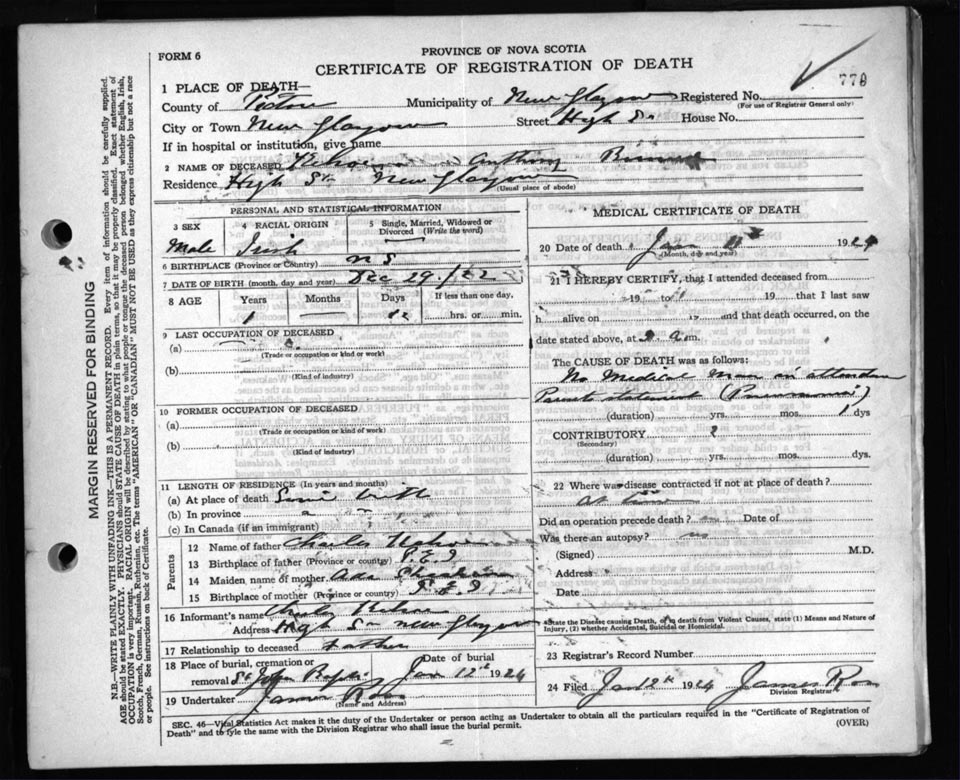 PROVINCE OF NOVA SCOTIA
FORM 6
CERTIFICATE OF REGISTRATION OF DEATH
779
1 PLACE OF DEATH—
County of Pictou Municipality of New Glasgow Registered No.
(For use of Registrar General only)
City or Town New Glasgow Street High St House No.
If in hospital or institution, give name
2 NAME OF DECEASED Anthony
Residence High St New Glasgow
(Usual place of abode)
PERSONAL AND STATISTICAL INFORMATION
3 SEX 4 RACIAL ORIGIN 5 Single, Married, Widowed or Divorced (Write the word)
Male Irish
6 BIRTHPLACE (Province or Country) N S
7 DATE OF BIRTH (month, day and year) Dec 29
8 AGE Years Months Days If less than one day,
1 12 hrs. or min.
9 LAST OCCUPATION OF DECEASED
(a)
(Trade or occupation or kind of work)
(b)
(Kind of industry)
10 FORMER OCCUPATION OF DECEASED
(a)
(Trade or occupation or kind of work)
(b)
(Kind of industry)
11 LENGTH OF RESIDENCE (In years and months)
(a) At place of death Since birth
(b) In province
(c) In Canada (if an immigrant)
Parents
12 Name of father Charles
13 Birthplace of father (Province or country) P.E.I
14 Maiden name of mother Ada
15 Birthplace of mother (Province or country) P E I
16 Informant's name Charles
Address High St New Glasgow
17 Relationship to deceased Father
18 Place of burial, cremation or Date of burial
removal St John Jan 12th 1924
19 Undertaker James Ross
(Name and Address)
MEDICAL CERTIFICATE OF DEATH
20 Date of death Jan 11th 1924
(Month, day and year)
21 I HEREBY CERTIFY, that I attended deceased from
19 to 19 that I last saw
h alive on 19 and that death occurred, on
date stated above, at 2 a.m.
The CAUSE OF DEATH was as follows:
No Medical Man in attendance
Parents statement (Pneumonia)
(duration) yrs. mos. 1 dys
CONTRIBUTORY
(Secondary)
(duration) yrs. mos. dys.
22 Where was disease contracted if not at place of death?
At home
Did an operation precede death? no Date of
Was there an autopsy? no
(Signed) M.D.
Address
Date
State the Disease causing Death, or in death from Violent Causes, state (1) Means and Nature of
Injury, (2) whether Accidental, Suicidal or Homicidal.
23 Registrar's Record Number
24 Filed Jan 12th 1924 James Ross
Division Registrar
SEC. 46—Vital Statistics Act makes it the duty of the Undertaker or person acting as Undertaker to obtain all the particulars required in the "Certificate of Registration of
Death" and to file the same with the Division Registrar who shall issue the burial permit.
(OVER)
MARGIN RESERVED FOR BINDING
N.B.—WRITE PLAINLY WITH UNFADING INK—THIS IS A PERMANENT RECORD. Every item of information should be carefully supplied.
AGE should be stated EXACTLY. PHYSICIANS should STATE CAUSE OF DEATH in plain terms, so that it may be properly classified. Exact statement of
OCCUPATION is very important. RACIAL ORIGIN will be described by stating to what people or tongue the deceased person belonged whether English, Irish,
Scotch, French, German, Russian, Ruthenian, etc. The terms "AMERICAN" OR "CANADIAN" MUST NOT BE USED as they express citizenship but not a race
or people. See instructions on back of Certificate.